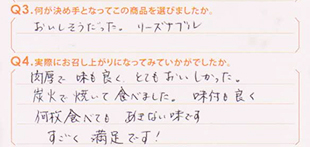 Q3.何が決め手となってこの商品を選びましたか。
おいしそうだった。 リーズナブル
Q4.実際にお召し上がりになってみていかがでしたか。
肉厚で 味も良く、とてもおいしかった。
炭火で焼いて食べました。 味付も良く
何枚食べても あきない味です
すごく 満足です!